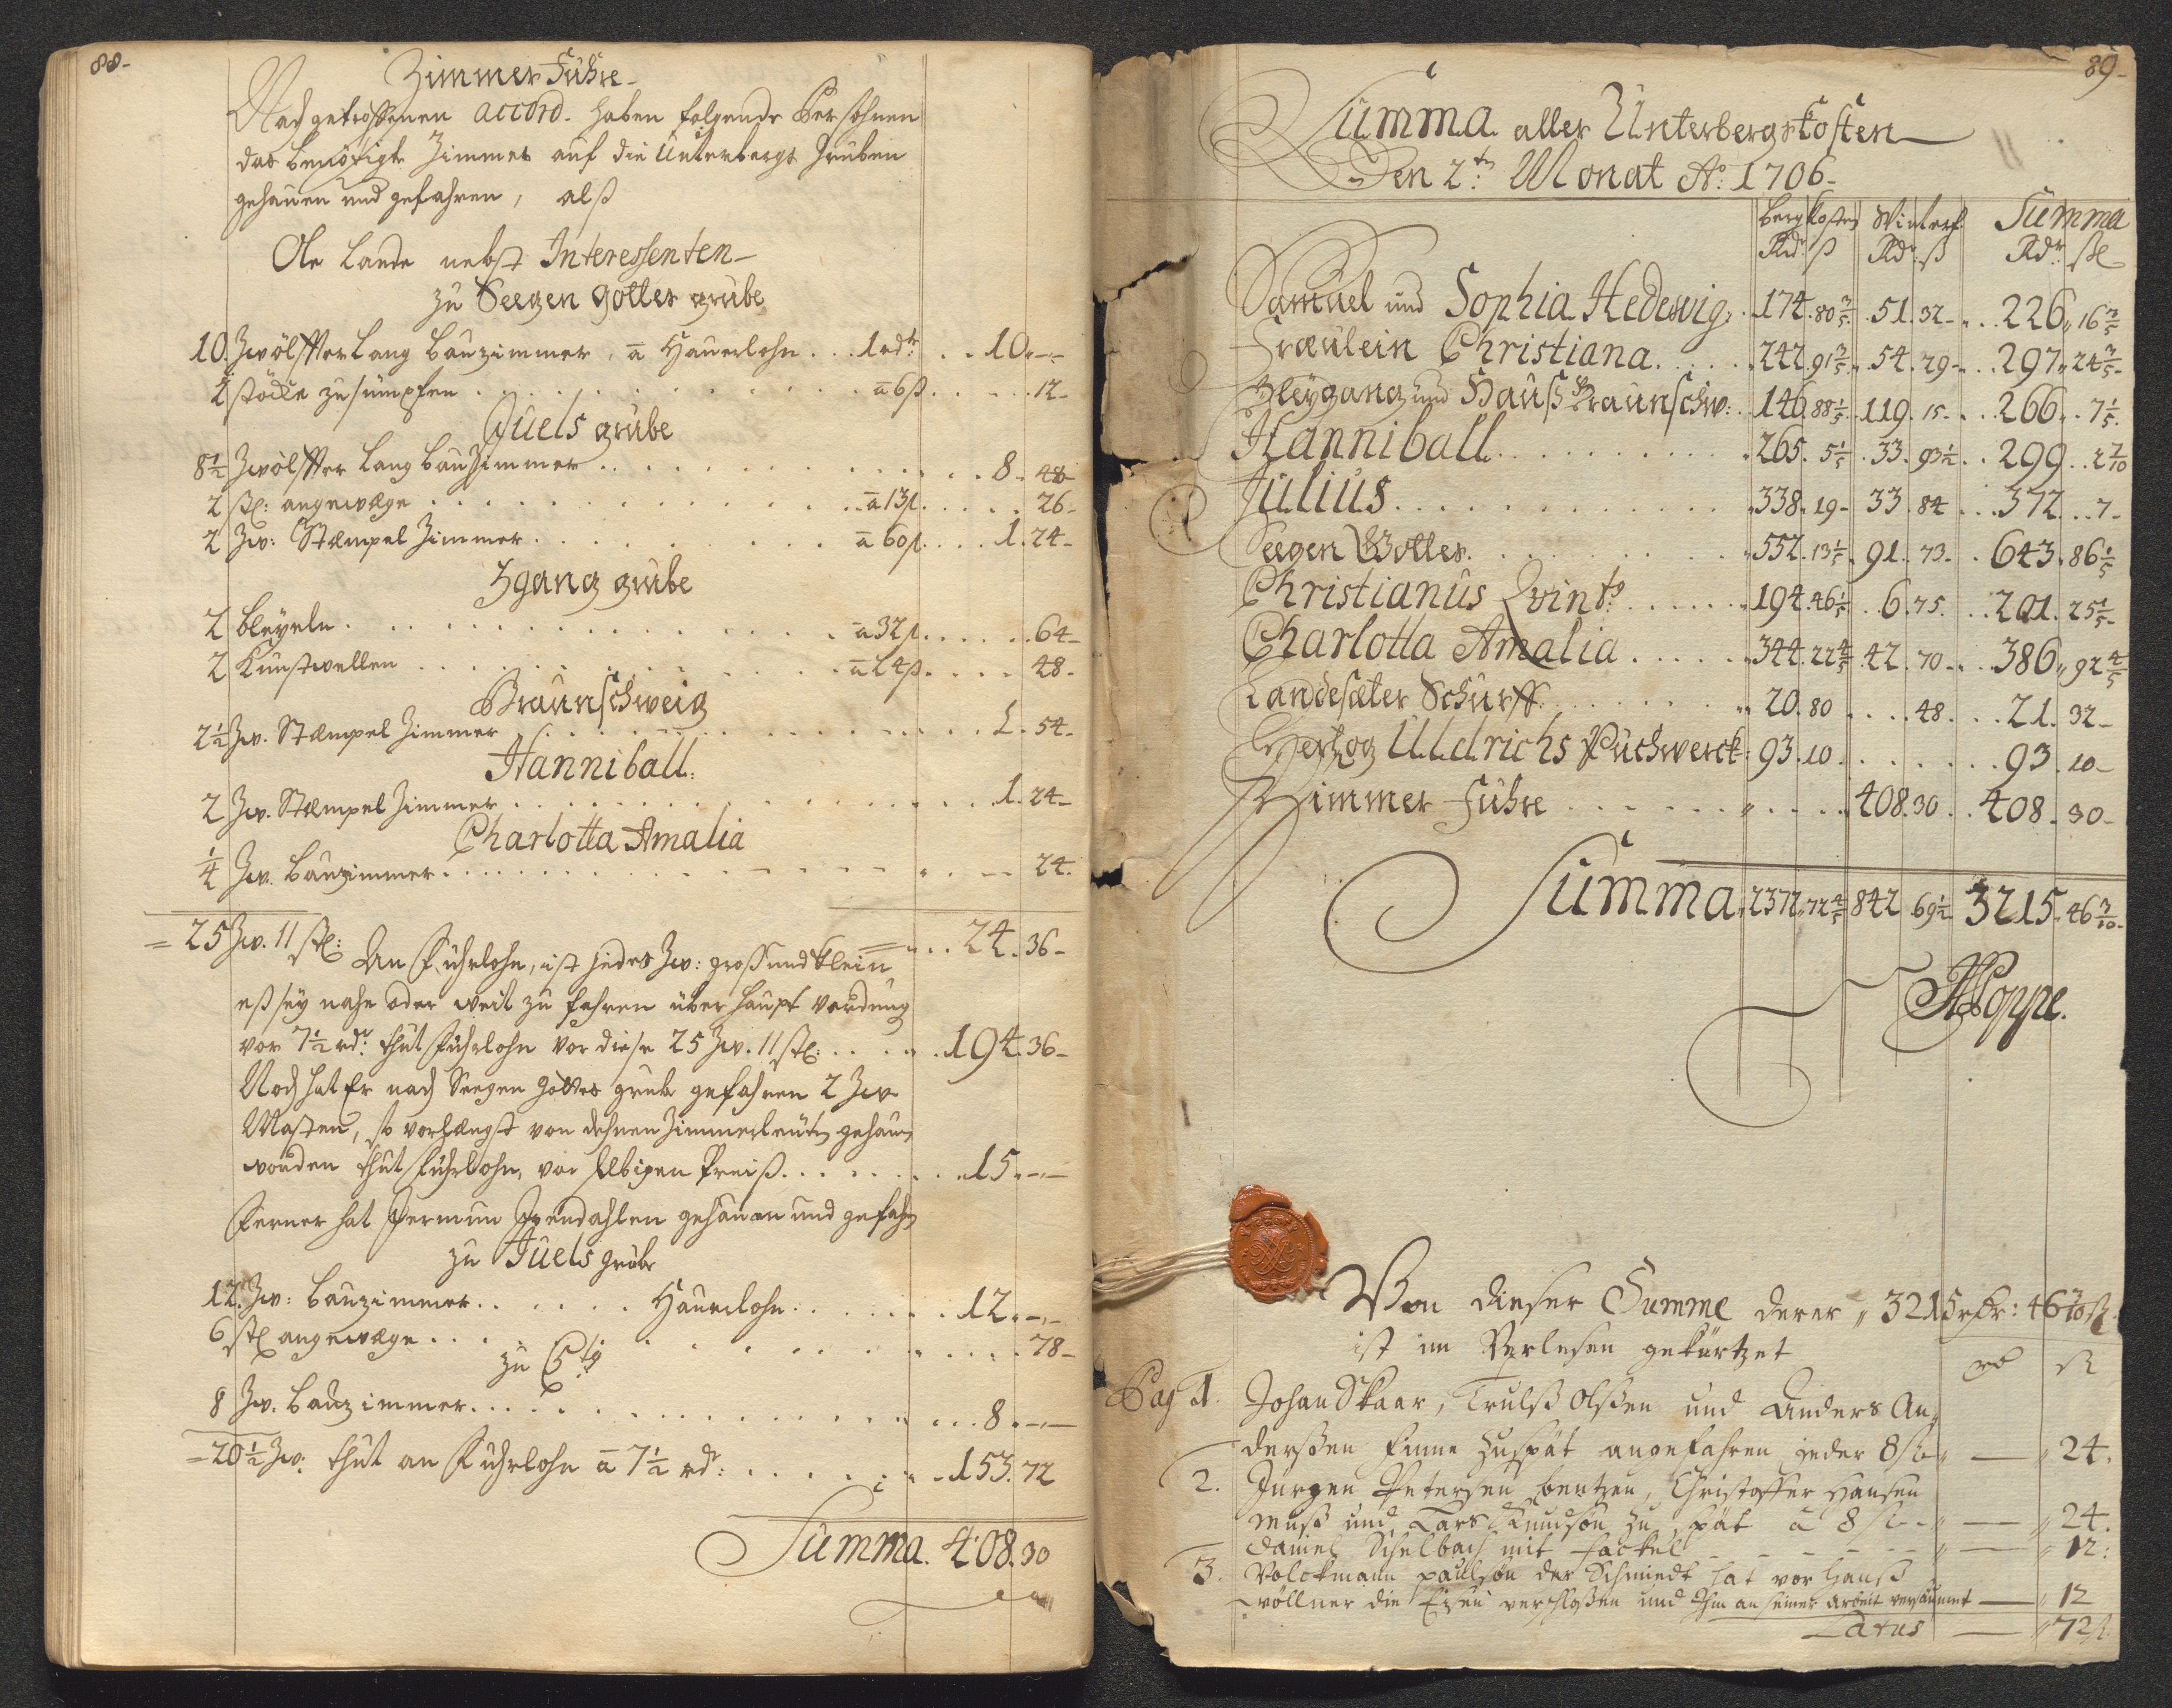 88-
Zimmer Fuhre-
Nach getroffenen accord. haben folgende Persohnen
das benötigte Zimmer auf die Unterbergs Gruben
gehauen und gefahren, alß
Ole Lande nebst Interessenten-
zu Seegen gottes grube
10. Zwölffter Lang Bauzimmer, a Hauerlohn . . . 1 rdr. . . 10.-.-
2 stöcke zu sümpfen . . . a 6 ß . . . 12-
Juels grube
8½ Zwölffter Lang Bau Zimmer . . . 8. 48
2 st: angewæge . . . a 13 ß . . . 26-
2 Zw: Stæmpel Zimmer . . . a 60 ß . . . 1. 24-
Zgang grube
2 bleyeln . . . a 32 ß . . . 64-
2 Kunstwellen . . . a 24 ß . . . 48-
Braunschweig
2½ Zw. Stæmpel Zimmer . . . 1. 54-
Hanniball.
2 Zw. Stæmpel Zimmer . . . 1. 24-
Charlotta Amalia
¼ Zw. Bauzimmer . . . 24.
25 Zw. 11 st: . . . 24. 36-
An Fuhrlohn, ist jedes Zw: groß und klein
eß sey nahe oder weit zu fahren überhaupt verdung
vor 7½ rdr. thut Fuhrlohn vor diese 25 Zw. 11 st: . . . 194. 36-
Noch hat Er nach Seegen Gottes grube gefahren 2 Zw
Masten, so vorlængst von dehnen Zimmerleuten gehauen
worden thut Fuhrlohn, vor selbigen Preiß . . . 15.-.-
Ferner hat gehauen und gefahren
zu Juels grube
12. Zw: Bauzimmer . . . Hauerlohn . . . 12.-.-
6 st angewæge . . . 78-
zu C 5to
8 Zw. Bauzimmer . . . 8.-.-
20½ Zw: thut an Fuhrlohn a 7½ rdr: . . . 153. 72
Summa. 408. 30
89-
Summa aller Unterbergskosten
Den 2ten Monat Ao: 1706-
bergkosten Winterf. Summa
Rdr ß Rdr: ß Rdr: ßl
Samuel und Sophia Hedewig: . 174. 80 3/5. 51. 32- . . 226. 16 3/5
Fræulein Christiana . . . 242. 91 3/5. 54. 29- . . 297. 24 3/5-
Zleygang und Hauß Braunschw: . . 146. 88 1/5. 119. 15- . . 266. . 7 1/5.
Hanniball . . . 265. 5 1/5. 33. 93 1/2 . . 299. . 2 7/10
Julius . . . 338. 19- 33. 84 . . . 372. . . 7-
Seegen Gottes . . . 552. 13 1/5. 91. 73- . . 643. 86 1/5
Christianus Qvint: . . . 194. 46 1/5. . 6. 75. . . 201. 25 1/5-
Charlotta Amalia . . . 344. 22 4/5. 42. 70- . . 386. 92 4/5
Landesæter Schurff . . . 20. 80 . . . 48. . . 21. 32-
Hertzog Uldrichs Puchwerck: 93. 10 . . . 93. 10-
Zimmer Fuhre . . . 408. 30 . . 408. 30-
Summa 2372. 72 4/5 842 69 1/2 3215. 46 3/10-
Hoppe.
Von dieser Summe derer 3215 rdr: 46 3/10 ß
ist im Verlesen gekürtzet
rd ß
Pag 1. Johan Skaar, Trulß Olßen und Anders An-
derßen Finne zu spät angefahren jeder 8 ß — 24.
2. Jurgen Petersen bentzen, Christoffer Hansen
muß und Lars Knudson zu spät a 8 ß — 24.
Daniel Schelbach mit Fackel — 12:
3. Volckmann paulson der Schmiedt hat vor Hanß
wöllner die Eisen verschloßen und Ihm an seiner arbeit versäumt — 12
Latus — 72 ß